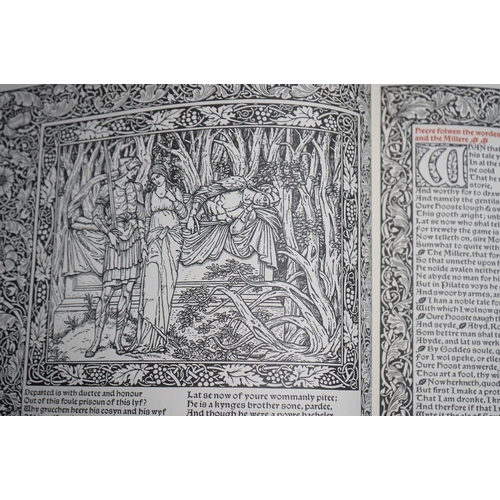 Departed is with duetee and honour
Out of this foule prisoun of this lyf?
Why grucchen heere his cosyn and his wyf
Lat se now of youre wommanly pitee;
He is a kynges brother sone, pardee,
And though he were a povre bacheler
Heere folwen the wordes
and the Millere
WHAN that
his tale
In al the
ne oold
That he
storie,
And worthy for to drawen
And namely the gentils
Oure Hooste lough &
This gooth aright; un
Lat se now who shal tel
for trewely the game is
Now telleth on, sire M
Sumwhat to quite with
The Millere, that for
So that unnethe upon h
He nolde avalen neither
Ne abyde no man for h
But in Pilates voys he
And swoor by armes, a
I kan a noble tale for
With which I wol now q
Oure Hooste saugh th
And seyde, Abyd, R
Som bettre man shal t
Abyde, and lat us werk
By Goddes soule,
for I wol speke, or elle
Oure Hoost answerde,
Thou art a fool, thy w
Now herkneth, quod
But first I make a prot
That I am dronke, I kn
And therfore if that I